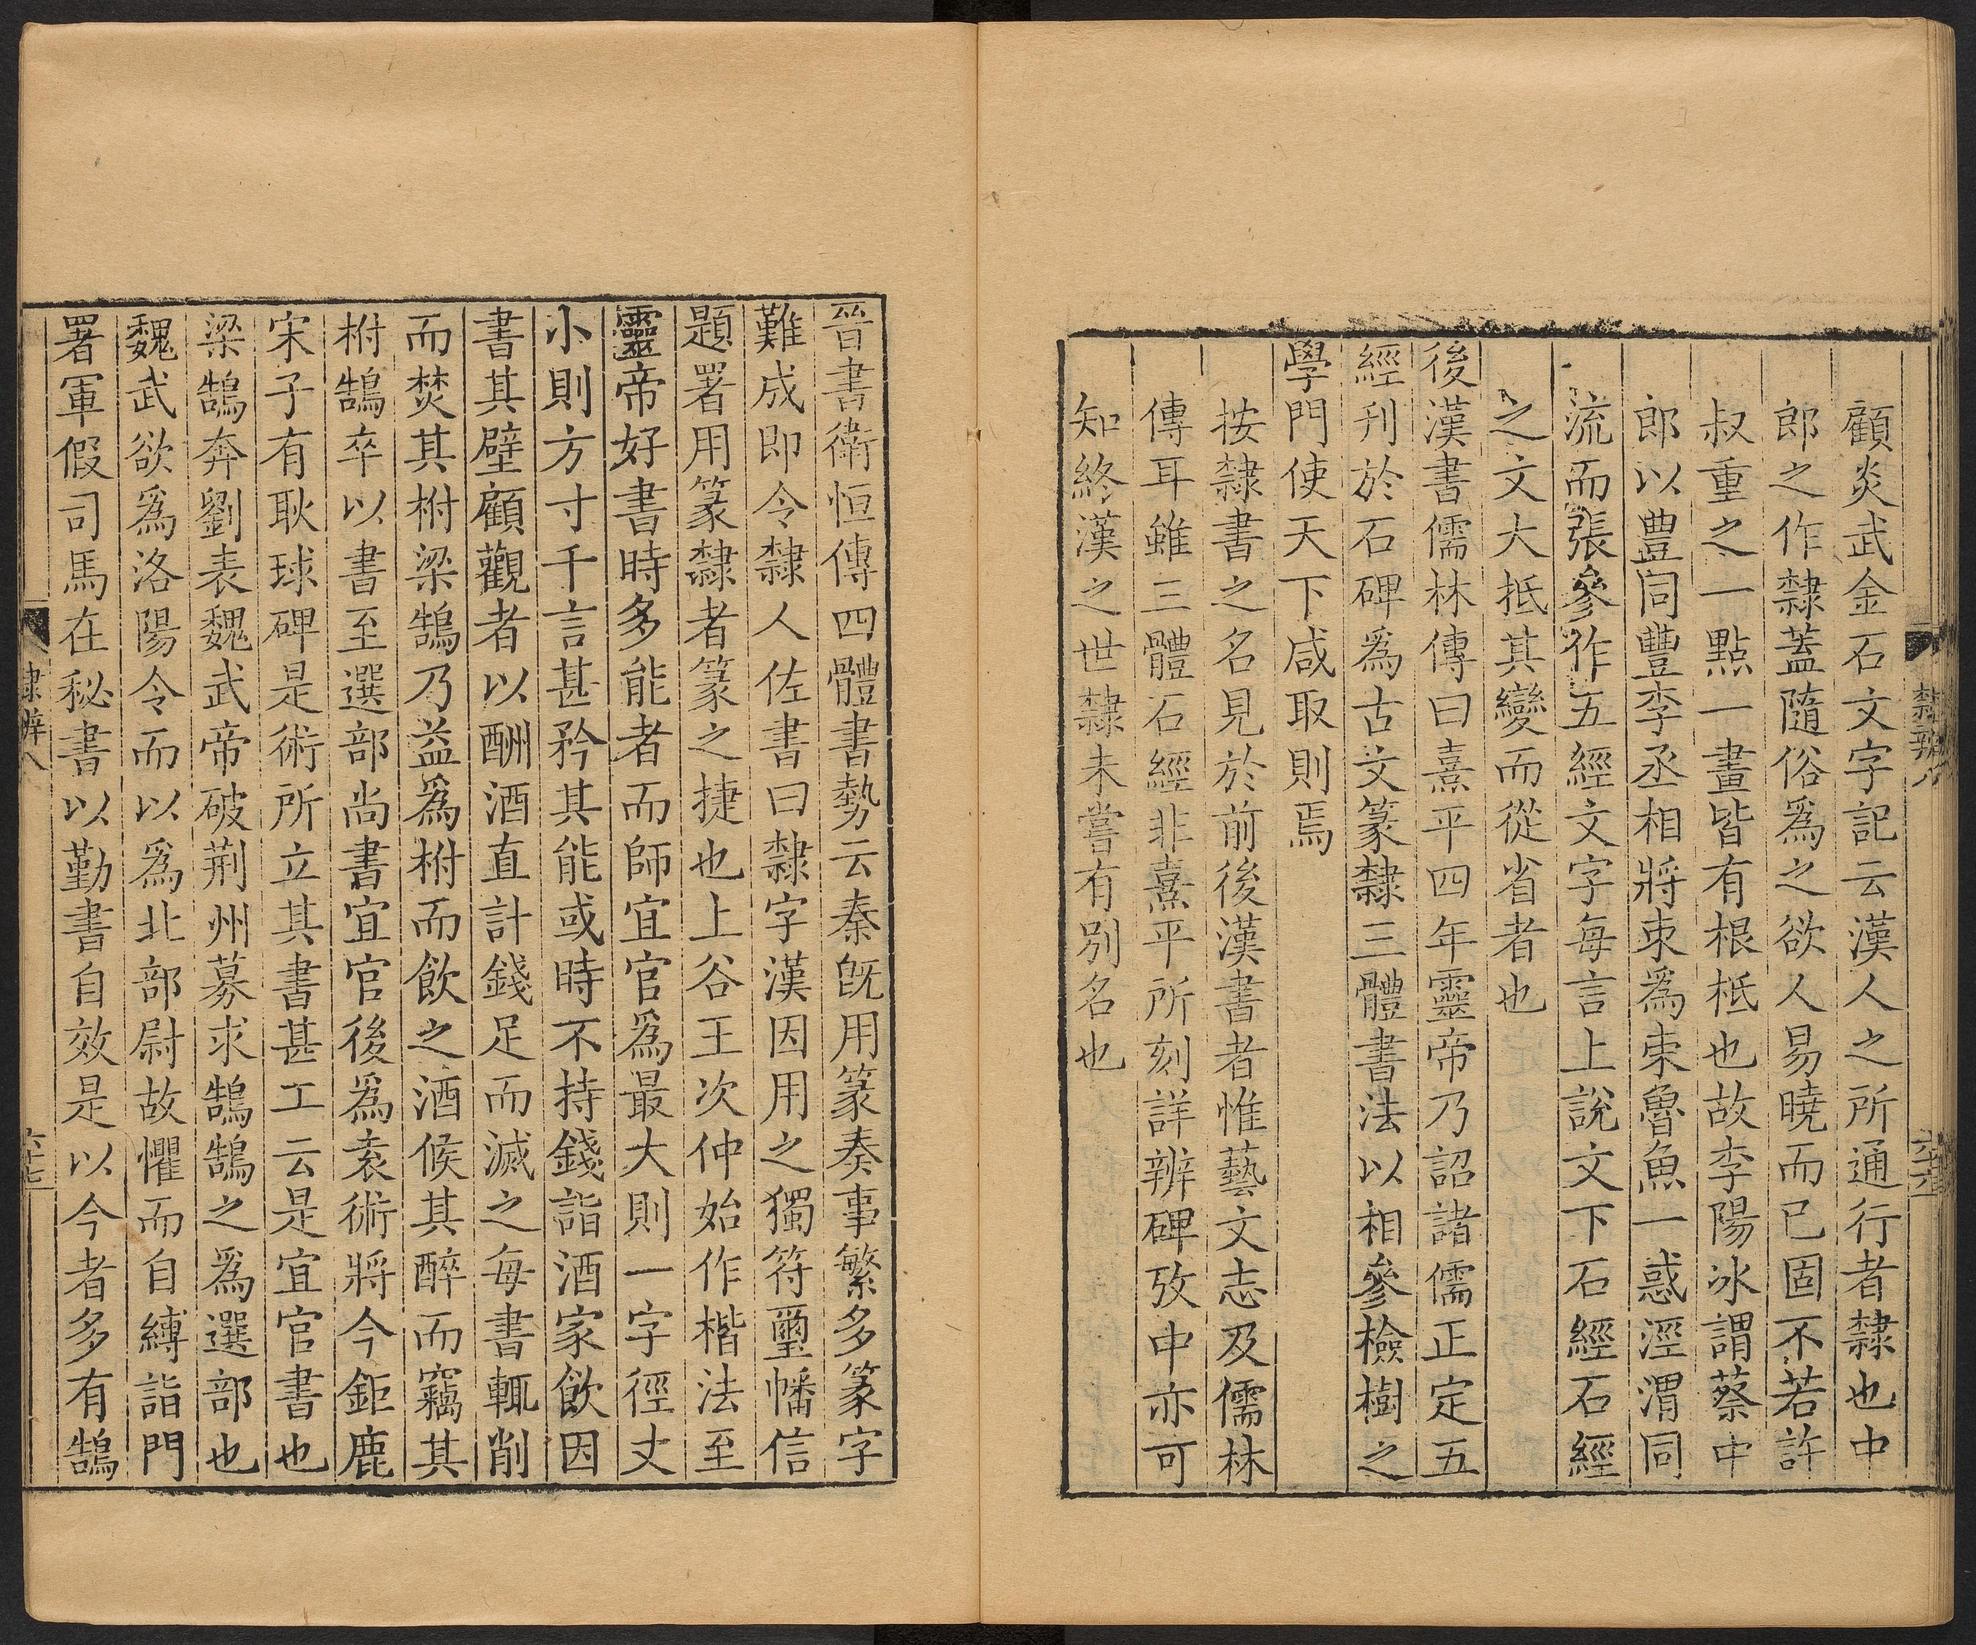 隸辨八
顧炎武金石文字記云漢人之所通行者隸也中
郎之作隸蓋隨俗爲之欲人易曉而已固不若許
叔重之一點一畫皆有根柢也故李陽冰謂蔡中
郎以豊同豐李丞相將朿爲束魯魚一惑涇渭同
流而張參作五經文字每言上說文下石經石經
之文大抵其變而從省者也
後漢書儒林傳曰熹平四年靈帝乃詔諸儒正定五
經刊於石碑爲古文篆隸三體書法以相參檢樹之
學門使天下咸取則焉
按隸書之名見於前後漢書者惟藝文志及儒林
傳耳雖三體石經非熹平所刻詳辨碑攷中亦可
知終漢之世隸未嘗有別名也
晉書衛恒傳四體書勢云秦旣用篆奏事繁多篆字
難成即令隸人佐書曰隸字漢因用之獨符璽幡信
題署用篆隸者篆之捷也上谷王次仲始作楷法至
靈帝好書時多能者而師宜官爲最大則一字徑丈
小則方寸千言甚矜其能或時不持錢詣酒家飲因
書其壁顧觀者以酬酒直計錢足而滅之每書輒削
而焚其柎梁鵠乃益爲柎而飲之酒候其醉而竊其
柎鵠卒以書至選部尚書宜官後爲袁術將今鉅鹿
宋子有耿球碑是術所立其書甚工云是宜官書也
梁鵠奔劉表魏武帝破荆州募求鵠鵠之爲選部也
魏武欲爲洛陽令而以爲北部尉故懼而自縛詣門
署軍假司馬在秘書以勤書自效是以今者多有鵠
隸辨八
六十七